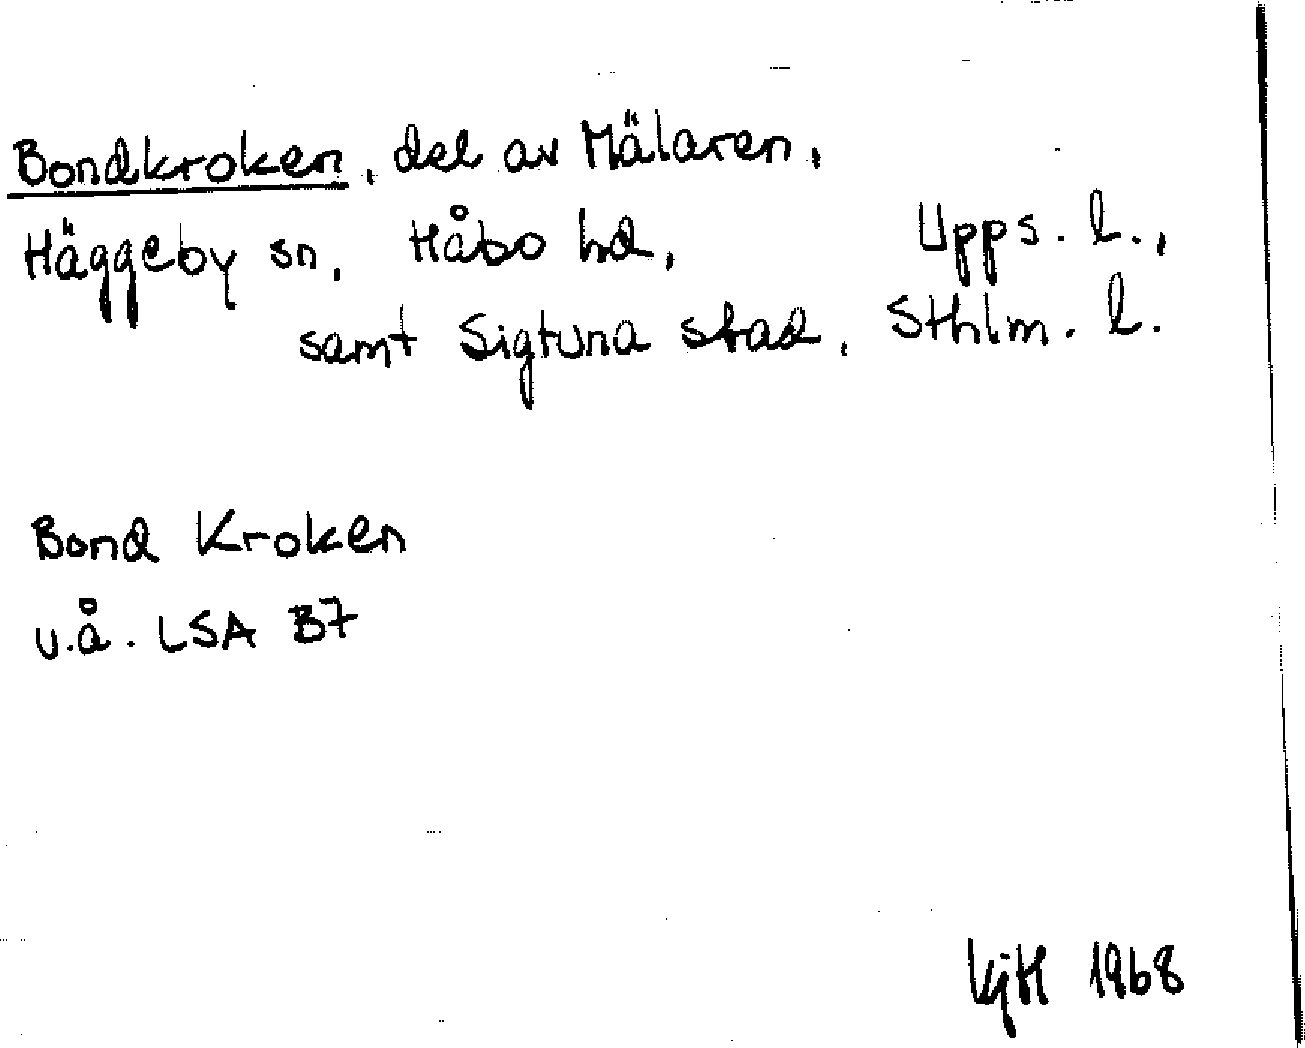 Bondkroken, del av Mälaren,
Häggeby sn, Håbo hd, Upps. l.,
samt Sigtuna stad, Sthlm. l.
Bond Kroken
u.å. LSA B7
KjH 1968